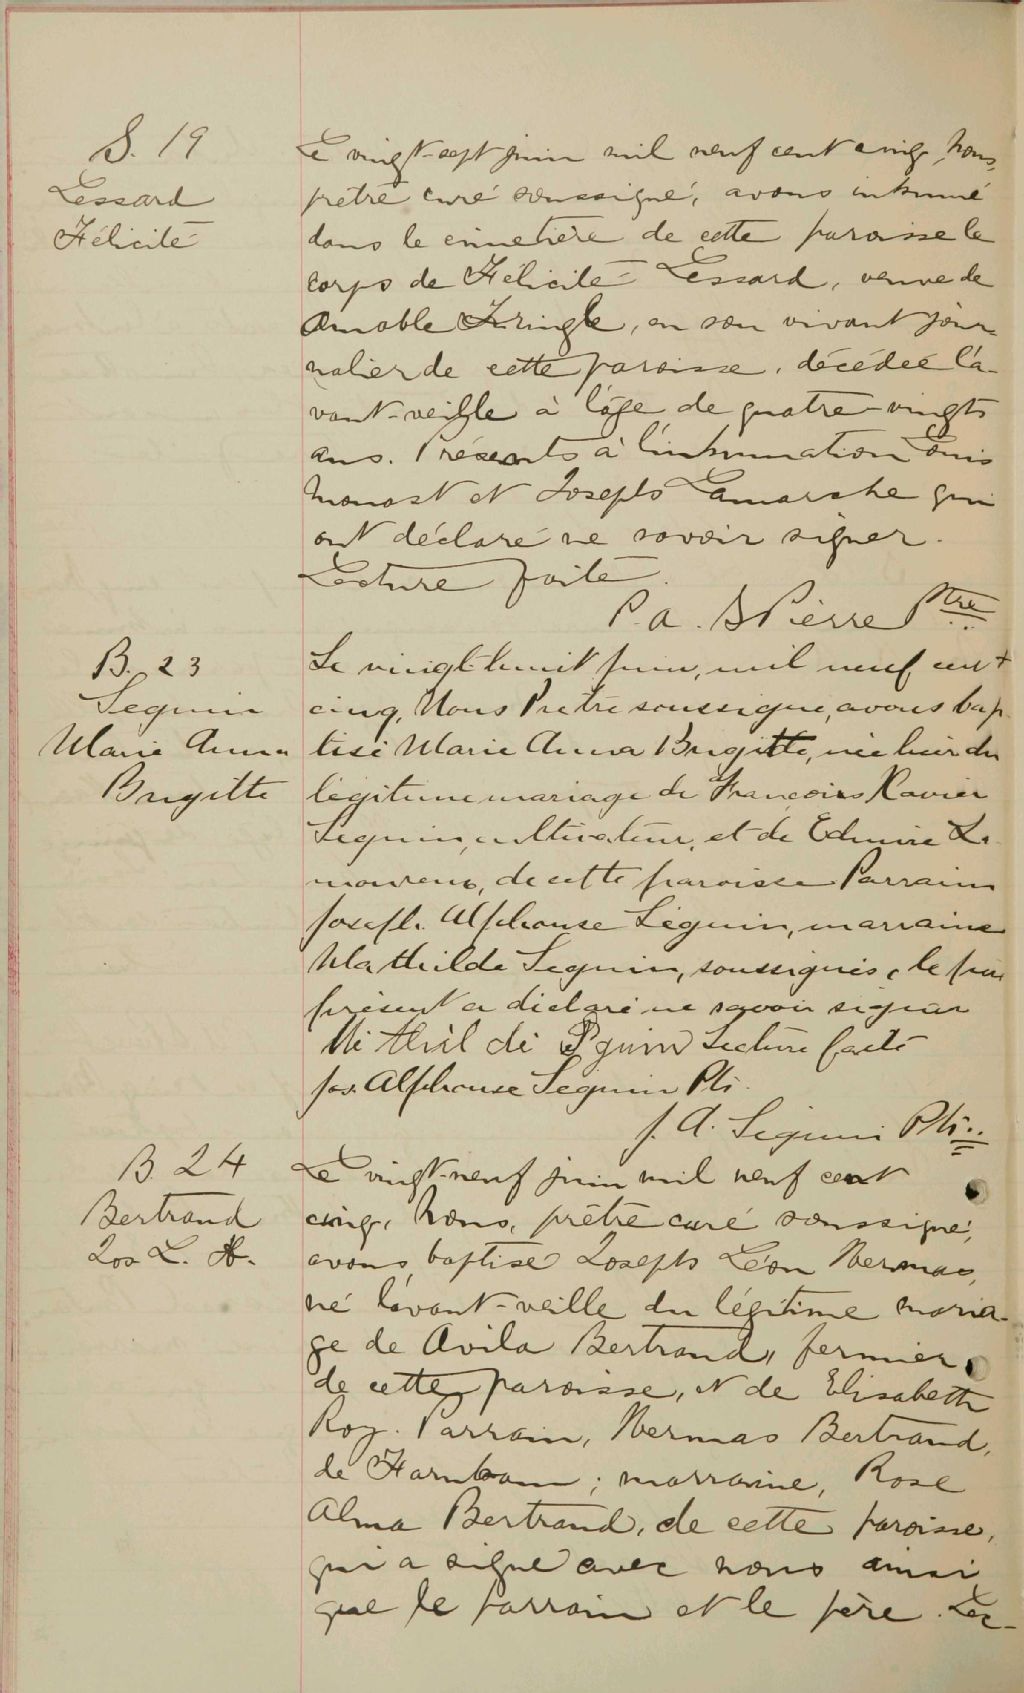 S. 19
Lessard
Félicité
Le vingt-sept juin mil neuf cent cinq, nous,
prêtre curé soussigné, avons inhumé
dans le cimetière de cette paroisse le
corps de Félicité Lessard, veuve de
Amable Fringle, en son vivant jour-
nalier de cette paroisse, décédée l'a-
vant-veille à l'âge de quatre-vingts
ans. Présents à l'inhumation Louis
Monast et Joseph Lamarche qui
ont déclaré ne savoir signer.
Lecture faite.
P. A. St Pierre Ptre
B. 23
Seguin
Marie Anna
Brigitte
Le vingt-huit juin, mil neuf cent
cinq, Nous Prêtre soussigné, avons bap-
tisé Marie Anna Brigitte, née hier du
légitime mariage de François Xavier
Seguin, cultivateur, et de Edmire La-
moureux, de cette paroisse Parrain
Joseph Alphonse Séguin, marraine
Mathilde Seguin, soussignés, le père
présent a déclaré ne savoir signer
Lecture faite
Jos. Alphonse Seguin Ptr.
J. A. Séguin Ptr.
B. 24
Bertrand
Jos L. H.
Le vingt-neuf juin mil neuf cent
cinq, Nous, prêtre curé soussigné,
avons baptisé Joseph Léon Hermas,
né l'avant-veille du légitime maria-
ge de Avila Bertrand, fermier,
de cette paroisse, et de Elisabeth
Roy. Parrain, Hermas Bertrand,
de Farnham; marraine, Rose
Alma Bertrand, de cette paroisse,
qui a signé avec nous ainsi
que le parrain et le père. Lec-